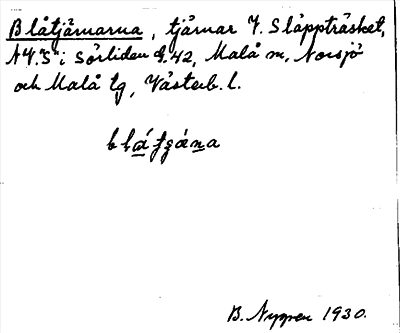 Blåtjärnarna, tjärnar V. Släppträsket,
NV."S" i Sörliden g. 42, Malå sn, Norsjö
och Malå tg, Västerb. l.
B. Nygren 1930.